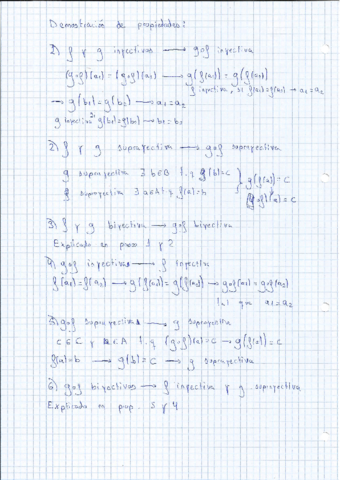 Demostración de propiedades:
1) f y g inyectivas → g∘f inyectiva
(g∘f)(a₁) = (g∘f)(a₂) → g(f(a₁)) = g(f(a₂))
f inyectiva, si f(a₁)=f(a₂) → a₁=a₂
→ g(b₁)=g(b₂) → a₁=a₂
g inyectiva si g(b₁)=g(b₂) → b₁=b₂
2) f y g suprayectiva → g∘f suprayectiva
g suprayectiva ∃ b∈B t.q g(b)=c
f suprayectiva ∃ a∈A t.q f(a)=b } g(f(a))=c
(g∘f)(a)=c
3) f y g biyectiva → g∘f biyectiva
Explicado en prop 1 y 2
4) g∘f inyectivas → f inyectiva
f(a₁)=f(a₂) → g(f(a₁))=g(f(a₂)) → g∘f(a₁)=g∘f(a₂)
a₁=a₂
5) g∘f suprayectivas → g suprayectiva
c∈C y a∈A t.q (g∘f)(a)=c → g(f(a))=c
f(a)=b → g(b)=c → g suprayectiva
6) g∘f biyectivas → f inyectiva y g suprayectiva
Explicado en prop. 5 y 4